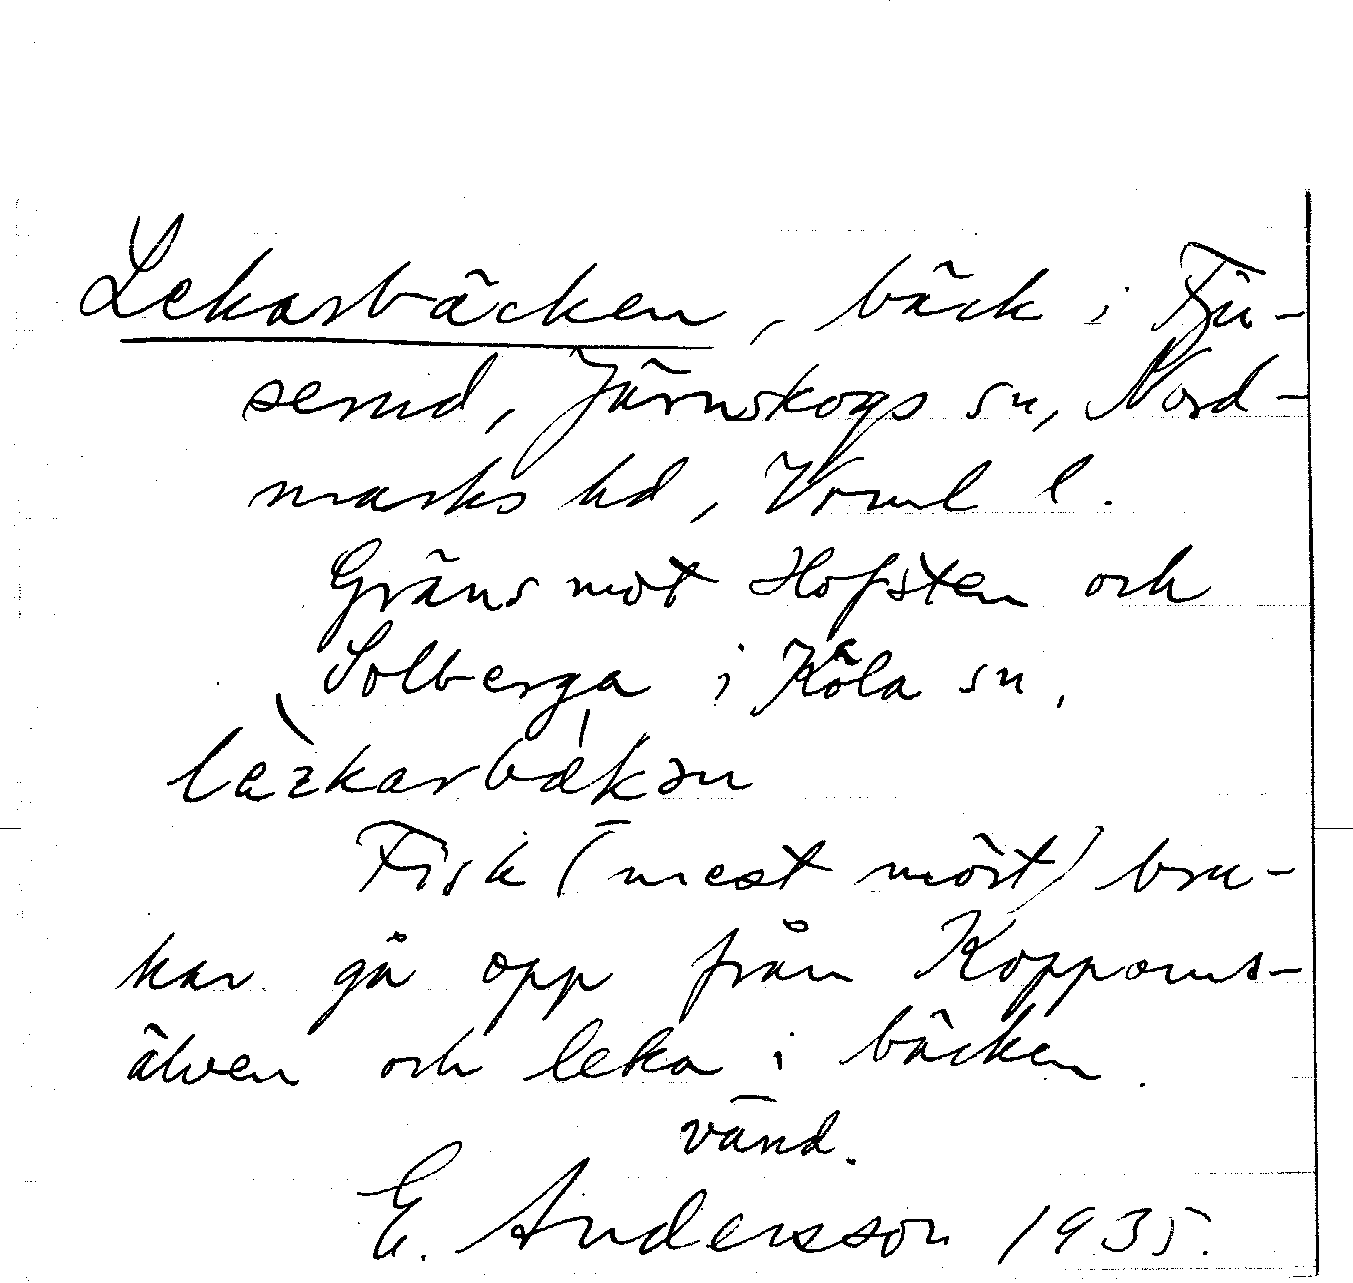 Lekarbäcken, bäck i Fju-
serud, Järnskogs sn, Nord-
marks hd, Vrml l.
Gräns mot Hofsten och
Solberga i Köla sn.
Fisk (mest mört) bru-
kar gå opp från Koppoms-
älven och leka i bäcken.
vänd.
E. Andersson 1935.